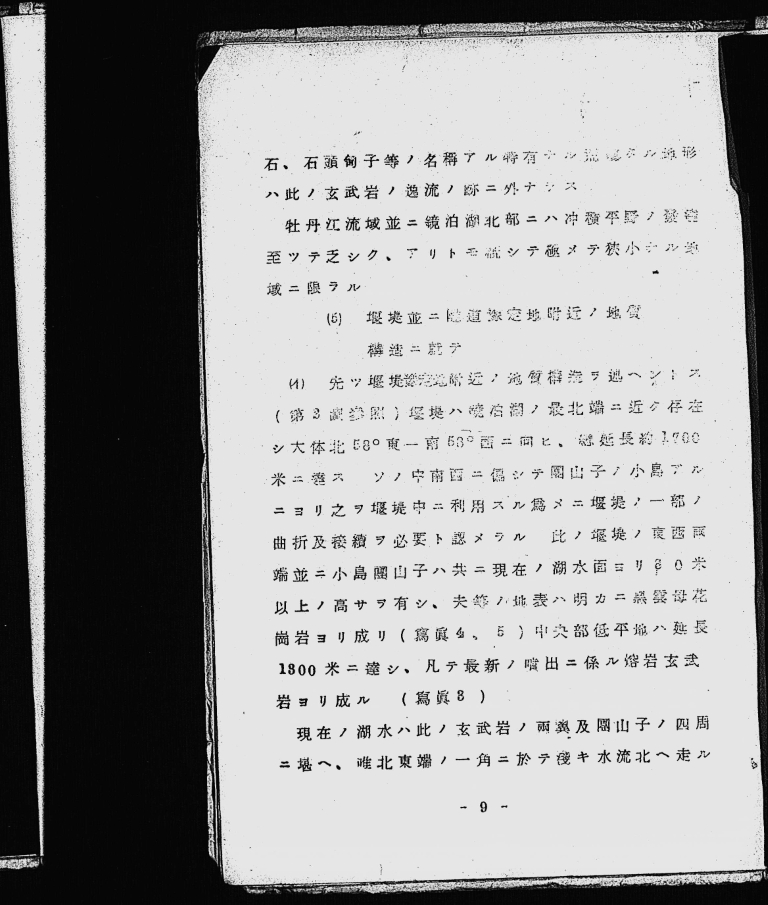 石、石頭甸子等ノ名稱アル特有ナル地形
ハ此ノ玄武岩ノ逸流ノ跡ニ外ナラス
牡丹江流域並ニ鏡泊湖北部ニハ冲積平野ノ發達
至ツテ乏シク、アリトモ概シテ極メテ狹小ナル地
域ニ限ラル
(5) 堰堤並ニ隧道豫定地附近ノ地質
構造ニ就テ
(イ) 先ツ堰堤豫定地附近ノ地質構造ヲ述ヘントス
(第3圖參照)堰堤ハ鏡泊湖ノ最北端ニ近ク存在
シ大体北58°東一南58°西ニ向ヒ、總延長約1700
米ニ達ス ソノ中南西ニ偏シテ團山子ノ小島アル
ニヨリ之ヲ堰堤中ニ利用スル爲メニ堰堤ノ一部ノ
曲折及接續ヲ必要ト認メラル 此ノ堰堤ノ東西兩
端並ニ小島團山子ハ共ニ現在ノ湖水面ヨリ 0米
以上ノ高サヲ有シ、夫等ノ地表ハ明カニ黑雲母花
崗岩ヨリ成リ(寫眞4、5)中央部低平地ハ延長
1300米ニ達シ、凡テ最新ノ噴出ニ係ル熔岩玄武
岩ヨリ成ル (寫眞3)
現在ノ湖水ハ此ノ玄武岩ノ兩翼及團山子ノ四周
ニ堪ヘ、唯北東端ノ一角ニ於テ淺キ水流北ヘ走ル
- 9 -